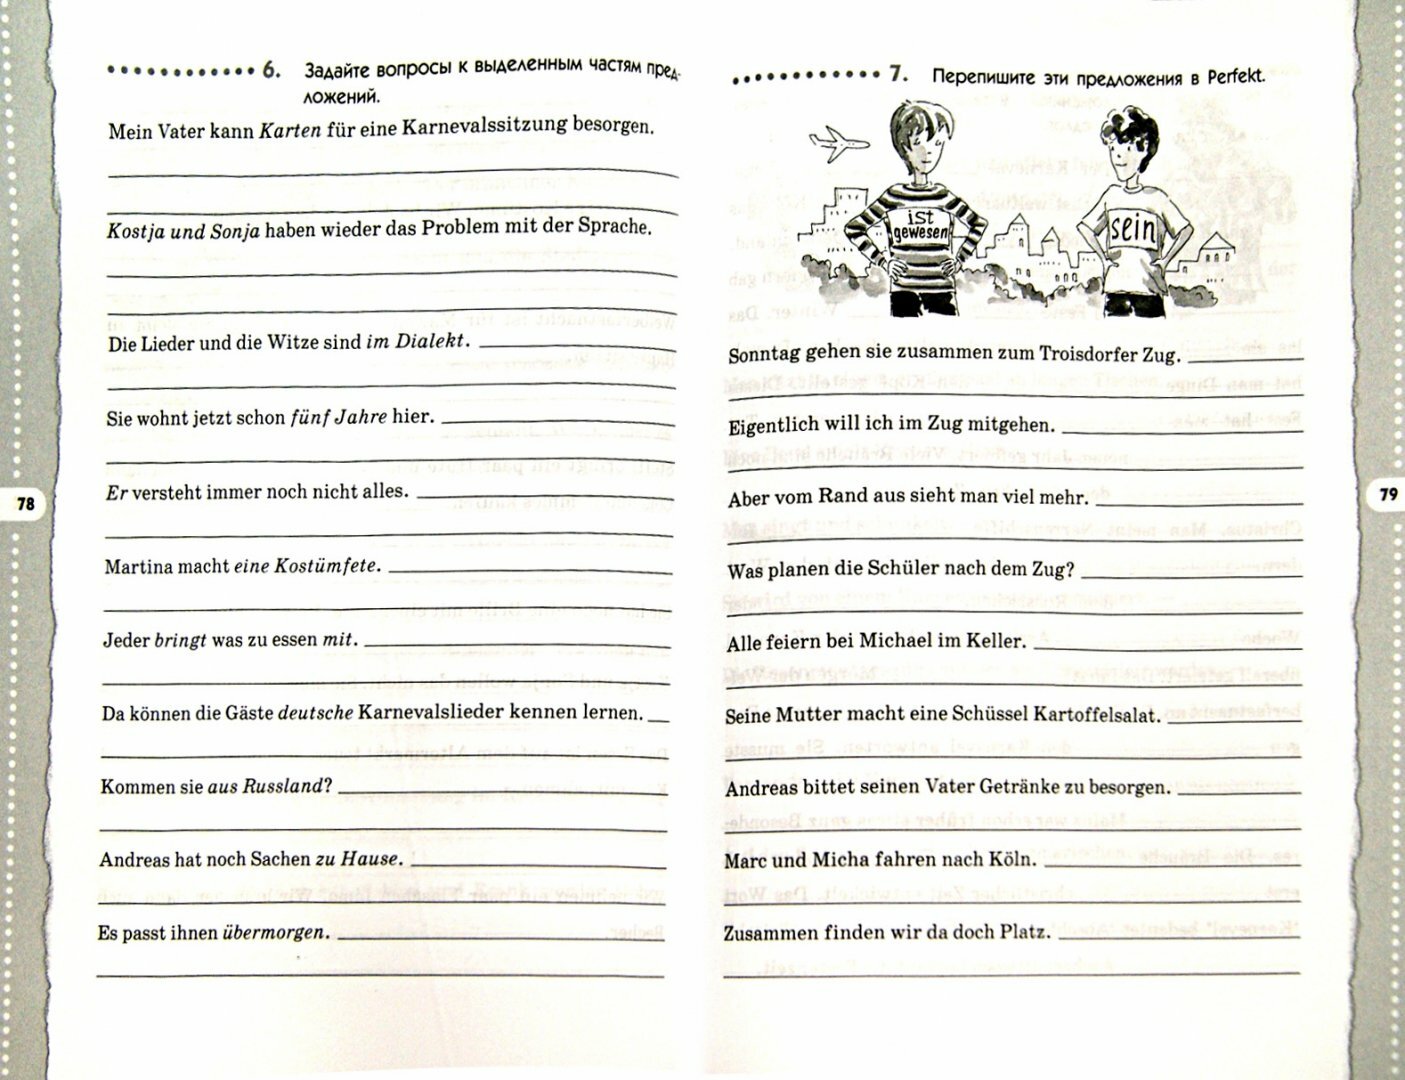 6. Задайте вопросы к выделенным частям пред-
ложений.
Mein Vater kann Karten für eine Karnevalssitzung besorgen.
Kostja und Sonja haben wieder das Problem mit der Sprache.
Die Lieder und die Witze sind im Dialekt.
Sie wohnt jetzt schon fünf Jahre hier.
Er versteht immer noch nicht alles.
Martina macht eine Kostümfete.
Jeder bringt was zu essen mit.
Da können die Gäste deutsche Karnevalslieder kennen lernen.
Kommen sie aus Russland?
Andreas hat noch Sachen zu Hause.
Es passt ihnen übermorgen.
78
7. Перепишите эти предложения в Perfekt.
ist
gewesen
sein
Sonntag gehen sie zusammen zum Troisdorfer Zug.
Eigentlich will ich im Zug mitgehen.
Aber vom Rand aus sieht man viel mehr.
Was planen die Schüler nach dem Zug?
Alle feiern bei Michael im Keller.
Seine Mutter macht eine Schüssel Kartoffelsalat.
Andreas bittet seinen Vater Getränke zu besorgen.
Marc und Micha fahren nach Köln.
Zusammen finden wir da doch Platz.
79